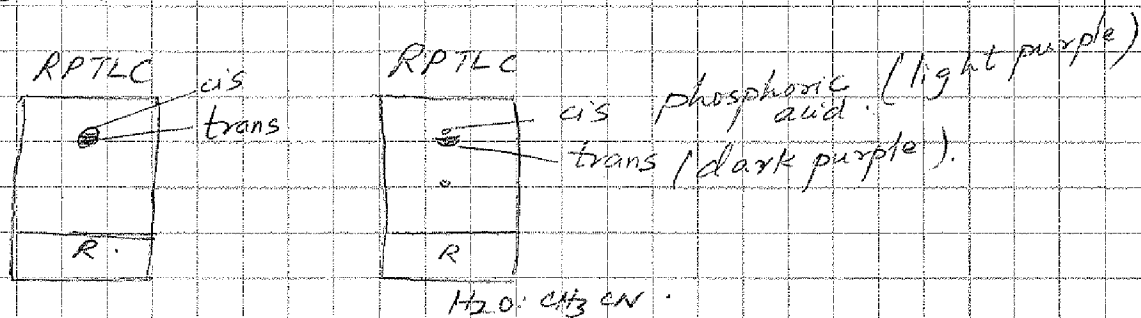 RPTLC
cis
trans
R.
RPTLC
cis phosphoric acid. (light purple)
trans (dark purple).
R
H2O: CH3CN.